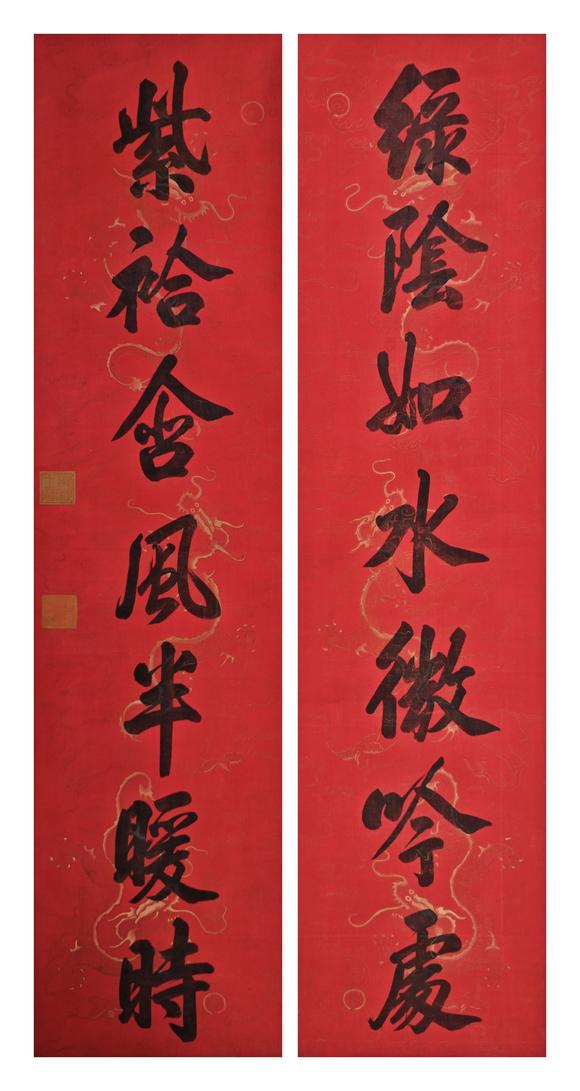 綠陰如水微吟處
紫袷含風半暖時